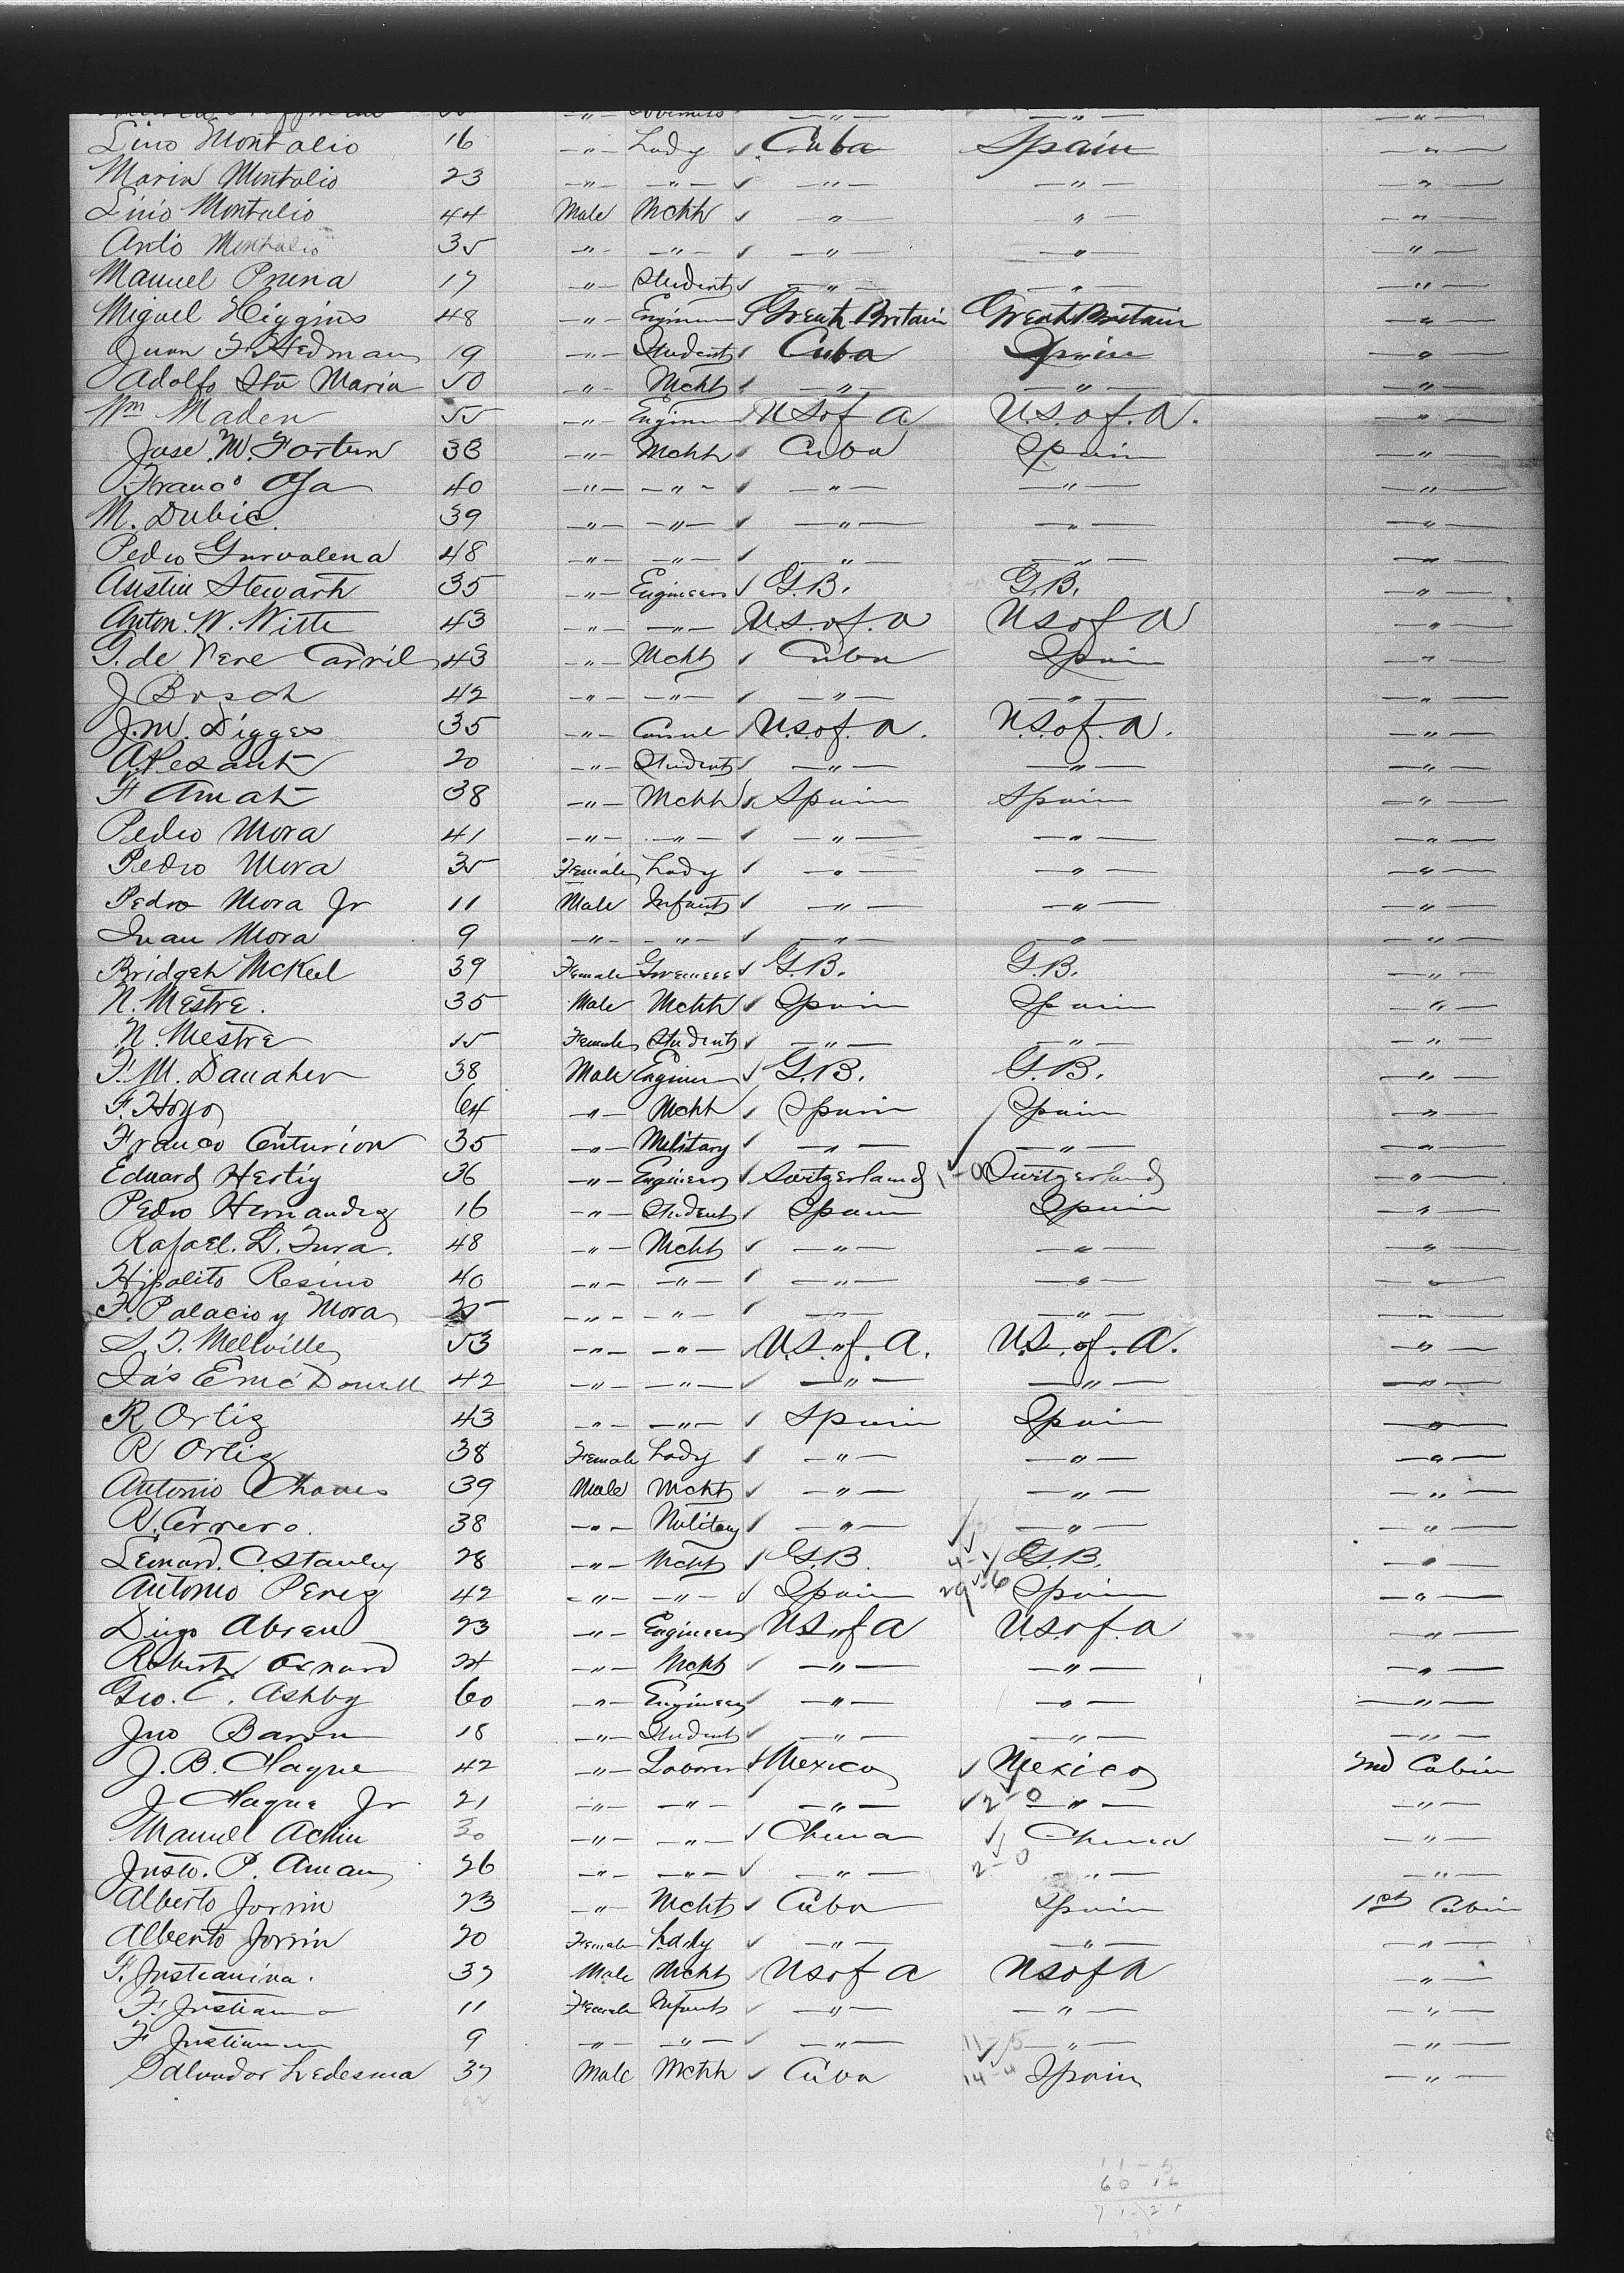 Lino Montalio 16 —"— Lady ✓ Cuba Spain —"—
Maria Montalio 23 —"— —"— ✓ —"— —"— —"—
Linio Montalio 44 Male Mcht ✓ —"— " —"—
Anto Montalio 35 —"— —"— ✓ —"— —"— "—
Manuel Pruna 17 —"— Student ✓ —"— —"— —"—
Miguel Higgins 48 —"— Engineer Great Britain Great Britain —"—
Juan F. Hedman 19 —"— Student ✓ Cuba Spain —"—
Adolfo Sta Maria 50 —"— Mcht ✓ —"— —"— —"—
Wm Maden 55 —"— Engineer U S of A U.S. of A. —"—
Jose. M. Fortun 33 —"— Mcht ✓ Cuba Spain —"—
Franco Osa 40 —"— —"— ✓ —"— —"— —"—
M. Dubic. 39 —"— —"— ✓ —"— —"— —"—
Pedro 48 —"— —"— ✓ —"— —"— —"—
Austin Stewart 35 —"— Engineer ✓ G.B. G.B. —"—
Anton. W. Witte 43 —"— —"— U.S. of. A U S of A —"—
G. de Vere Carril 43 —"— Mcht ✓ Cuba Spain —"—
J Bosch 42 —"— —"— ✓ —"— —"— —"—
J. M. Digges 35 —"— Consul U.S. of. A. U.S. of. A. —"—
A. Pesant 20 —"— Student ✓ —"— —"— —"—
F Amat 38 —"— Mcht ✓ Spain Spain —"—
Pedro Mora 41 —"— —"— ✓ —"— —"— —"—
Pedro Mora 35 Female Lady ✓ —"— —"— —"—
Pedro Mora Jr 11 Male Infant ✓ —"— —"— —"—
Juan Mora 9 —"— —"— ✓ —"— —"— —"—
Bridget McKeel 39 Female Governess ✓ G.B. G.B. —"—
N. Mestre. 35 Male Mcht ✓ Spain Spain —"—
N. Mestre 15 Female Student ✓ —"— —"— —"—
F. M. Danaher 38 Male Engineer ✓ G.B. G.B. —"—
F. Hoyo 64 —"— Mcht ✓ Spain Spain —"—
Franco Centurion 35 —"— Military ✓ —"— —"— —"—
Eduard Hertig 36 —"— Engineer ✓ Switzerland 1-0 Switzerland —"—
Pedro Hernandez 16 —"— Student ✓ Spain Spain —"—
Rafael. D. 48 —"— Mcht ✓ —"— —"— —"—
Hipolito Resino 40 —"— —"— ✓ —"— —"— —"—
F. Palacio y Mora 25 —"— —"— ✓ —"— —"— —"—
S. T. Mellville 53 —"— —"— U.S. of. A. U.S. of. A. —"—
Jas E McDowell 42 —"— —"— ✓ —"— —"— —"—
R Ortiz 43 —"— —"— ✓ Spain Spain —"—
R Ortiz 38 Female Lady ✓ —"— —"— —"—
Antonio Chaves 39 Male Mcht ✓ —"— —"— —"—
R. Carrero. 38 —"— Military ✓ —"— ✓ —"— —"—
Leonard. C. Stanley 28 —"— Mcht ✓ G.B. 4-1 G.B. —"—
Antonio Perez 42 —"— —"— ✓ Spain 29-6 Spain —"—
Diego Abreu 23 —"— Engineer U S of A U.S. of. A —"—
Robert Oxnard 24 —"— Mcht ✓ —"— —"— —"—
Geo. E. Ashby 60 —"— Engineer ✓ —"— —"— —"—
Jno Baron 18 —"— Student ✓ —"— —"— —"—
J. B. Hague 42 —"— Laborer ✓ Mexico ✓ Mexico 2nd Cabin
J Hague Jr 21 —"— —"— —"— ✓ 2-0 —"— —"—
Manuel Achin 30 —"— —"— ✓ China ✓ China —"—
Justo. P. Aman 26 —"— —"— ✓ —"— 2-0 —"— —"—
Alberto Jorrin 23 —"— Mcht ✓ Cuba Spain 1st Cabin
Alberto Jorrin 20 Female Lady ✓ —"— —"— —"—
F. Justianina. 37 Male Mcht U S of A U S of A —"—
F. Justianina 11 Female Infant ✓ —"— —"— —"—
F Justianina 9 —"— —"— ✓ —"— 11-5 —"— —"—
Salvador Ledesma 37 Male Mcht ✓ Cuba 14-4 Spain —"—
92
11-5
60 16